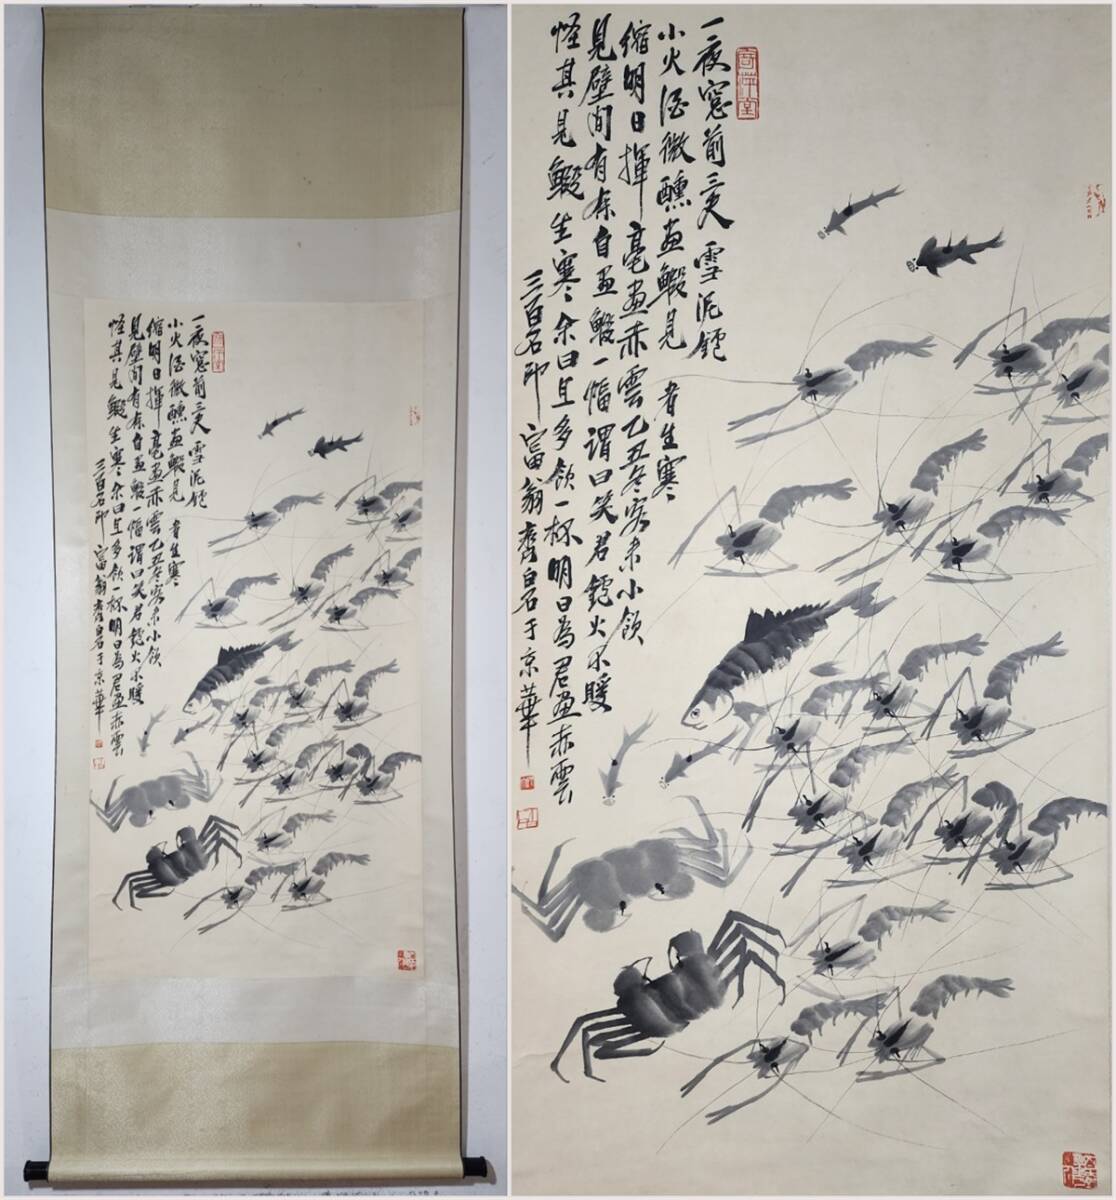 一夜窓前三尺雪泥鑪
小火酒微醺画鰕見
者生寒
縮明日揮毫画赤雲乙丑冬客来小飲
見壁間有余自画鰕一幅謂曰笑君鑪火不暖
怪其見鰕生寒〻余曰且多飲一杯明日為君画赤雲
三百石印富翁齊白石于京華